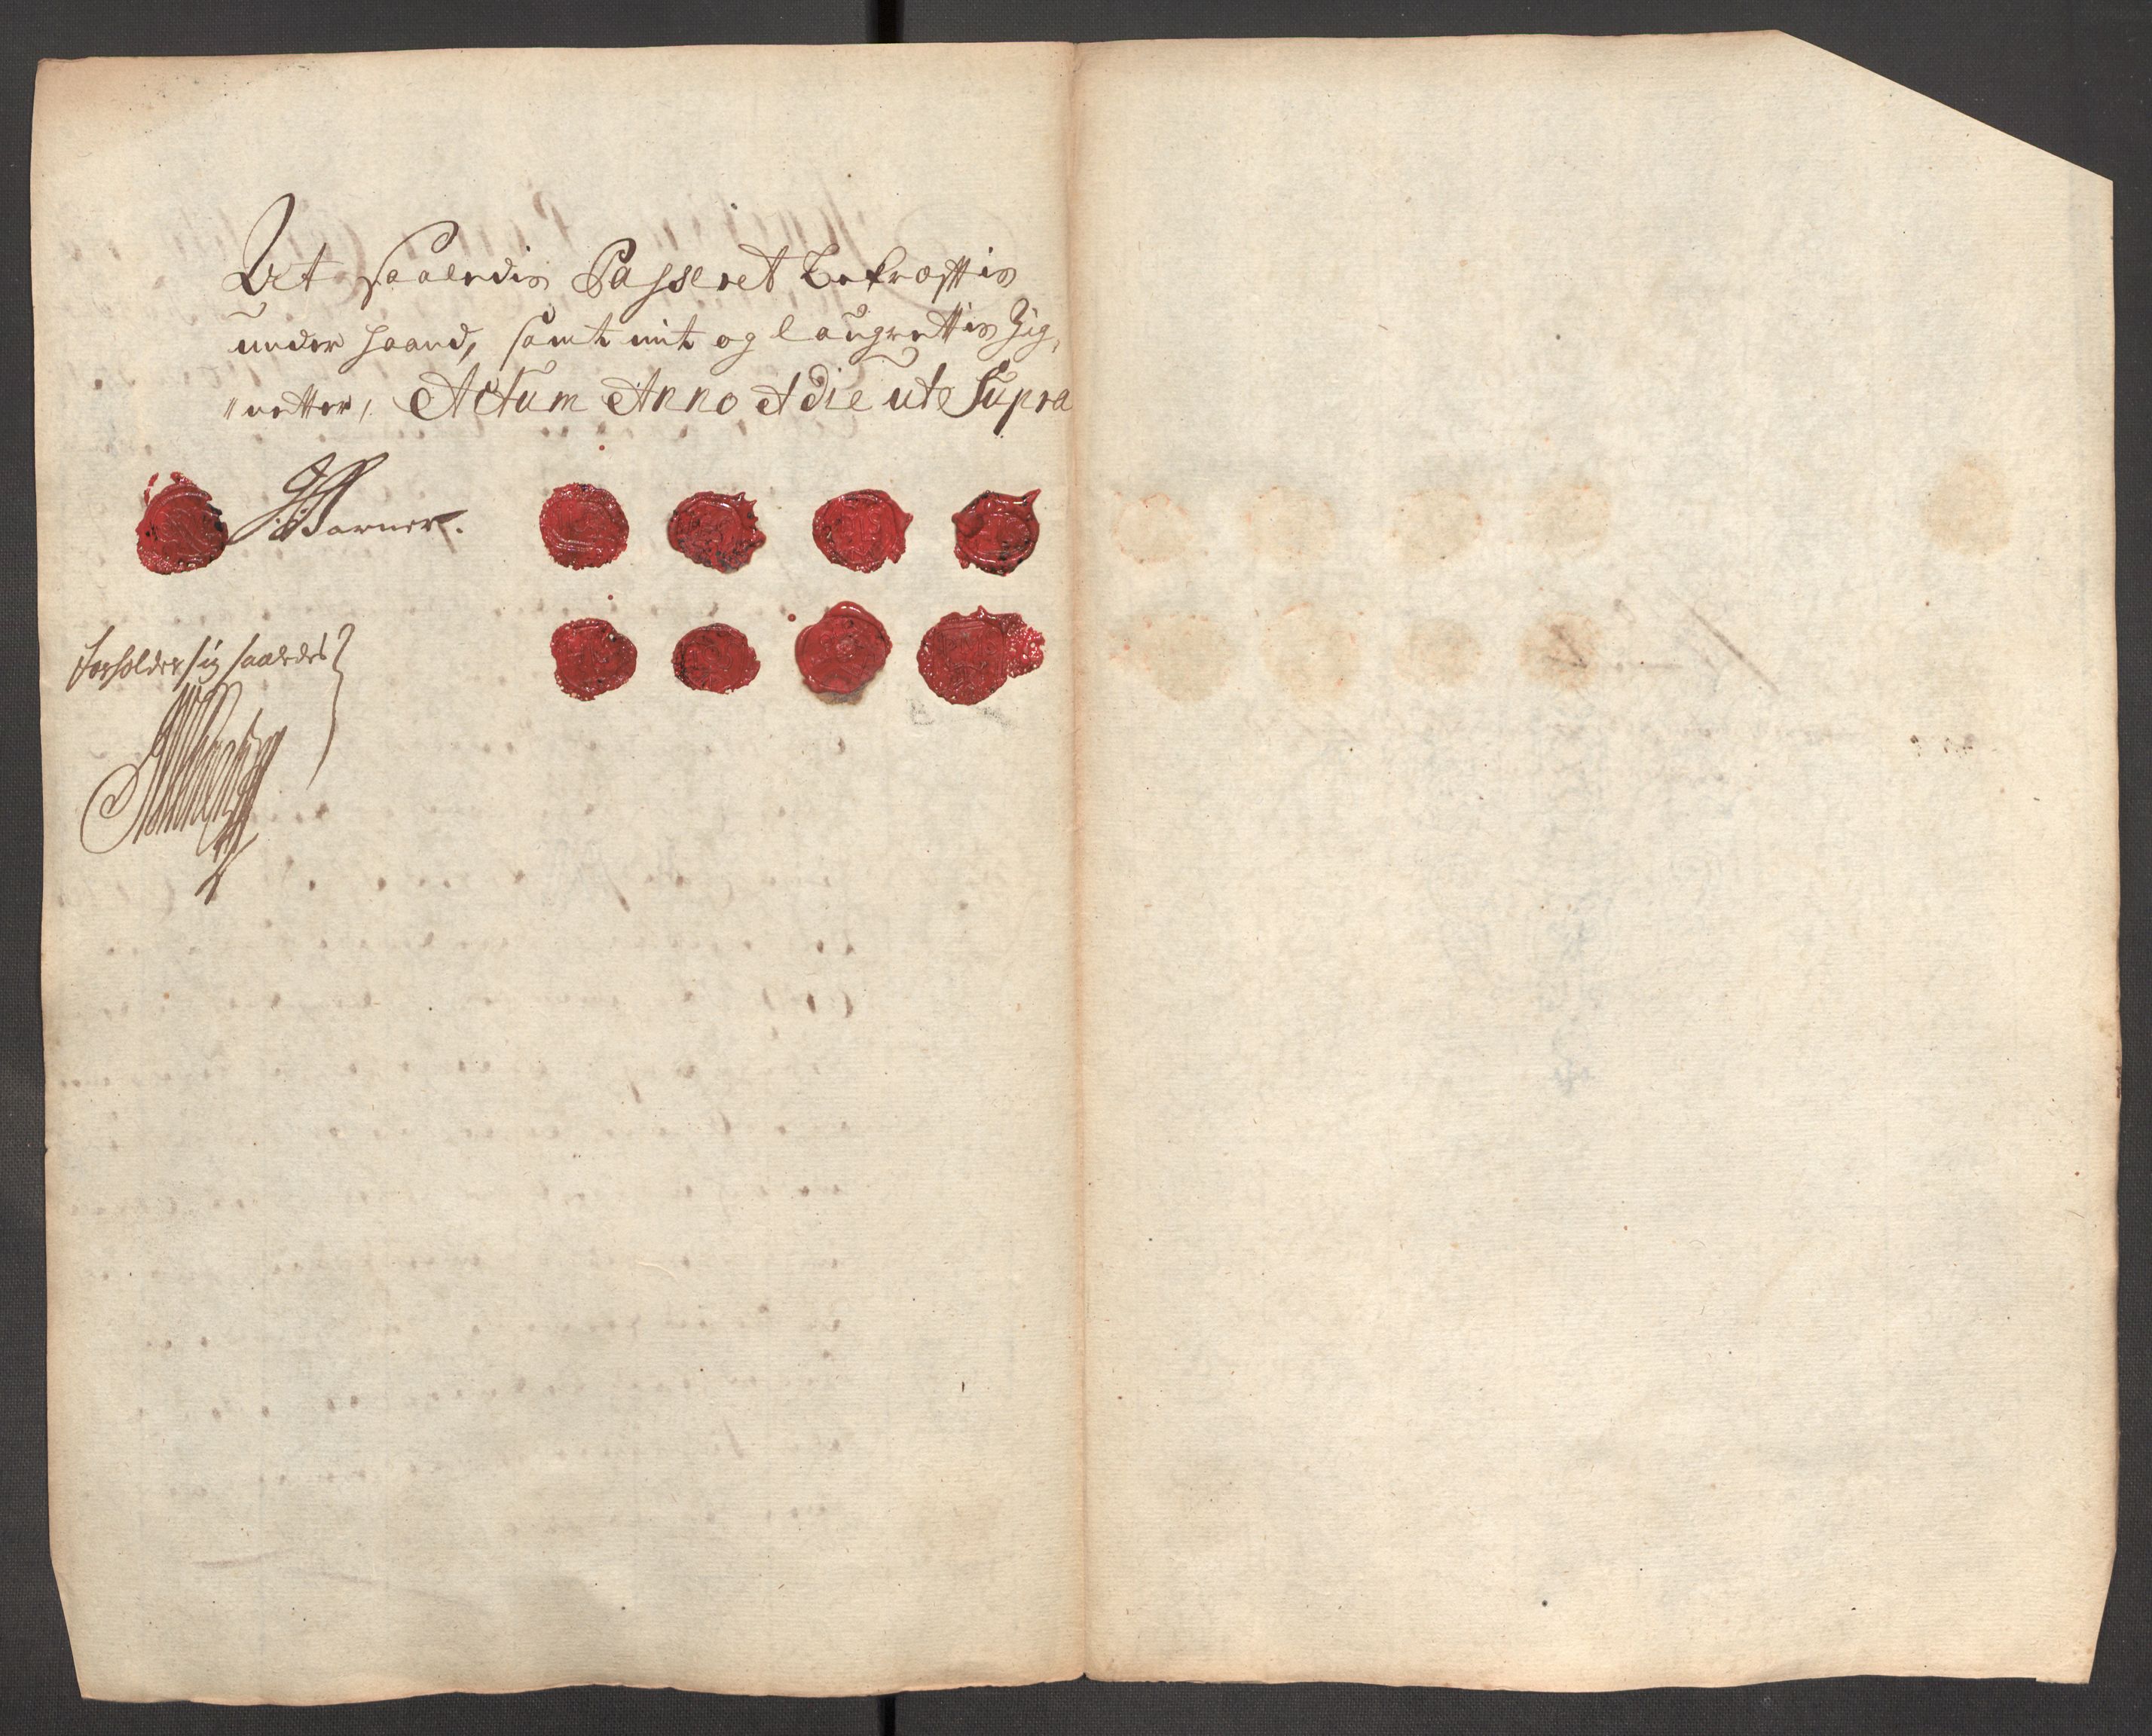 At saaledis Passeret Bekræfftis
under haand, samt mit og laugrettis Zig,
"netter, Actum Anno et die ute Supra
Warner.
forholder sig saaledes